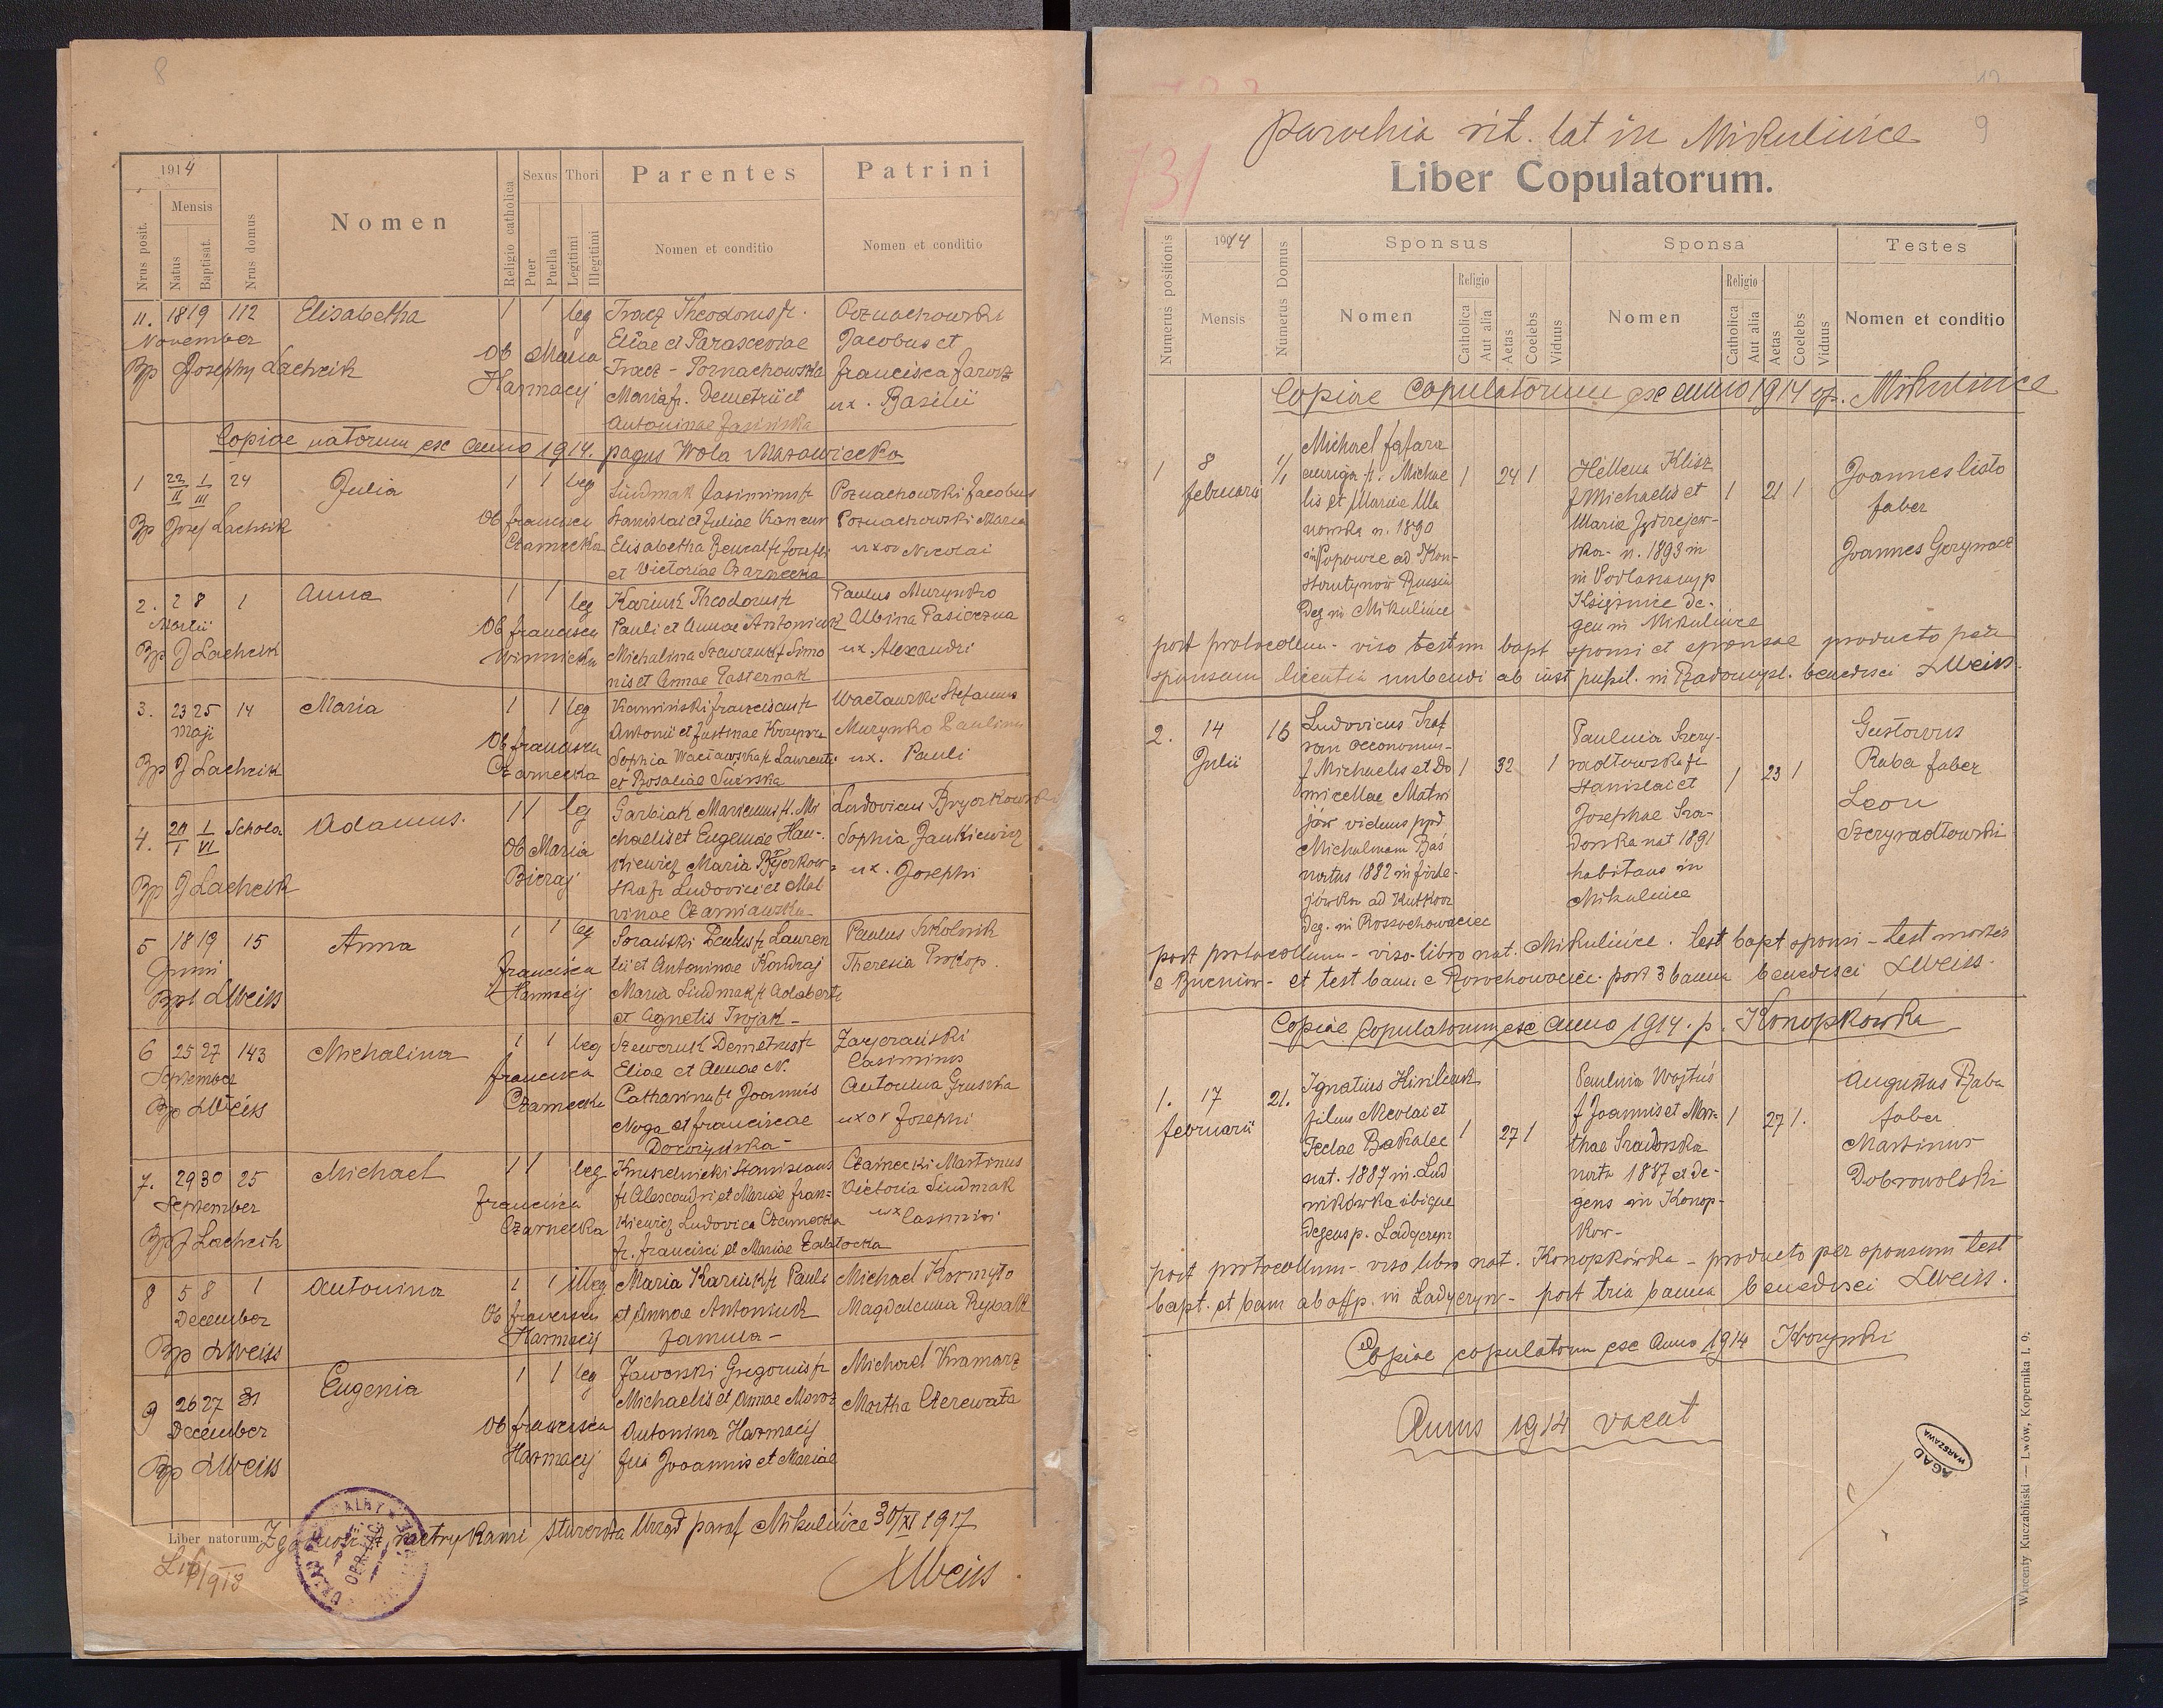 8
1914
Nrus posit.
Mensis
Natus
Baptisat.
Nrus domus
Nomen
Religio catholica
Sexus
Puer
Puella
Thori
Legitimi
Illegitimi
Parentes
Nomen et conditio
Patrini
Nomen et conditio
11. 18 19 112 Elisabetha 1 1 leg
November
Bp Josephy Lachcik
Ob Maria
Harmacij
Tracz Theodorus f.
Eliae et Parasceviae
Tracz - Poznachowska
Maria f. Demetrii et
Antoninae Jasińska
Poznachowski
Jacobus et
Francisca Jarosz
ux. Basilii
Copiae natorum ex anno 1914. pagus Wola Mazowiecka
1 22/II 1/III 24 Julia 1 1 leg
Bp Josef Lachcik
Ob Francisca
Czarnecka
Stanislai et Juliae
Elisabetha
et Victoriae Czarnecka
Poznachowski Jacobus
Poznachowski Maria
uxor Nicolai
2. 2 8 1 Anna 1 1 leg
Martii
Bp J Lachcik
Ob Francisca
Winnicka
Kariuk Theodorus f.
Pauli et Annae Antoniuk
Michalina Szewczuk f. Simo
nis et Annae Pasternak
Paulus Murynko
Albina Pasieczna
ux. Alexandri
3. 23 25 14 Maria 1 1 leg
Maji
Bp J Lachcik
Ob Francisca
Czarnecka
Kamiński Franciscus f.
Antonii et Justinae
Sophia Wacławska f. Laurentii
et Rosaliae
Wacławski Stefanus
Murynko Paulina
ux. Pauli
4. 20/I 1/VI Schola Adamus. 1 1 leg
Bp J Lachcik
Ob Maria
Bieraj
Garbiak Marianus f. Mi
chaelis et Eugeniae Han-
kiewicz Maria Bryczkow
ska f. Ludovici et Mal
vinae Czarniawska
Ludovicus Bryczkowski
Sophia Jankiewicz
ux. Josephi
5 18 19 15 Anna 1 1 leg
Junii
Bpt LWeiss
Francisca
Harmacij
Paulus f. Lauren
tii et Antoninae Kondraj
Maria Siudmak f. Adalberti
et Agnetis Trojak -
Paulus Szkolnik
Theresia Prokop.
6 25 27 143 Michalina 1 1 leg
September
Bp LWeiss
Francisca
Czarnecka
Szewczuk Demetrius f.
Eliae et Annae N.
Catharina f. Joannis
Noga et Franciscae
Casimirus
Antonina Gruszka
uxor Josephi
7. 29 30 25 Michael 1 1 leg
September
Bp J Lachcik
Francisca
Czarnecka
Stanislaus
f. Alexandri et Mariae Fran=
kiewicz Ludovica Czarnecka
fr. Francisci et Mariae Zabłocka
Czarnecki Martinus
Victoria Siudmak
ux Casimiri
8 5 8 1 Antonina 1 1 illeg
December
Bp LWeiss
Ob Francisca
Harmacij
Maria Kariuk f. Pauli
et Annae Antoniuk
famula -
Michael Kormyło
Magdalena Rybak
9 26 27 31 Eugenia 1 1 leg
December
Bp LWeiss
Ob Francisca
Harmacij
Jaworski Gregorius f.
Michaelis et Annae Moroz
Antonina Harmacij
fia Joannis et Mariae
Michael Kramarz
Martha Czerewata
Liber natorum
Zgodność z metrykami stwierdza Urząd paraf Mikulińce 30/XI 1917
LWeiss.
9
731
Parochia rit. lat in Mikulińce
Liber Copulatorum.
Numerus positionis
1914
Mensis
Numerus Domus
Sponsus
Nomen
Religio
Catholica
Aut alia
Aetas
Coelebs
Viduus
Sponsa
Nomen
Religio
Catholica
Aut alia
Aetas
Coelebs
Viduus
Testes
Nomen et conditio
Copiae Copulatorum ex anno 1914 op. Mikulińce
1 8
Februarii
Michael Fafara
auriga f. Michae
lis et Mariae Ula
nowska n. 1890
in Popowce ad Kon-
stantynów Russia
deg in Mikulińce
1 24 1
Hellena Klisz
f Michaelis et
Maria Jędrzejew-
ska - n. 1893 in
in Podlasie
Księżnice de-
gen in Mikulińce
1 21 1
Joannes Listo
faber
Joannes
post protocollum - viso testim bapt sponsi et sponsae producto per
sponsam licentia nubendi ab inst pupil. in Radomysl. benedixi LWeiss.
2. 14
Julii
16
Ludovicus
oeconomus-
f Michaelis et Do
micellae Matwi
jów viduus ppd
Michalinam Baś
natus 1882 in
ad Kutkorz
deg. in Rossochowaciec
1 32 1
Paulina Szczy-
radłowska f.
Stanislai et
Josephae Sza-
dorska nat 1891
habitans in
Mikulińce
1 23 1
Gustavus
Raba faber
Leon
Szczyradłowski
post protocollum - viso libro nat. Mikulińce. test bapt sponsi - test mortis
e Buczniow - et test bann e Rossochowaciec post 3 banna benedixi LWeiss.
Copiae Copulatorum ex anno 1914. p. Konopkówka
1. 17
Februarii
21.
Ignatius
filius Nicolai et
Teclae Bakalec
nat. 1887 in Lud
wikówka ibique
degens p. Ladyczyn
1 27 1
Paulina Wojtuś
f Joannis et Mar-
thae Szadowska
nata 1887 et de-
gens in Konop-
kow-
1 27 1.
Augustus Raba
faber
Martinus
Dobrowolski
post protocollum - viso libro nat. Konopkówka - producto per sponsum test
bapt. et bann ab offp. in Ladyczyn - post tria banna benedixi LWeiss.
Copiae copulatorum ex Anno 1914 Krzywki
Annus 1914 vacat
AGAD
WARSZAWA
Wincenty Kuczabiński — Lwów, Kopernika l. 9.